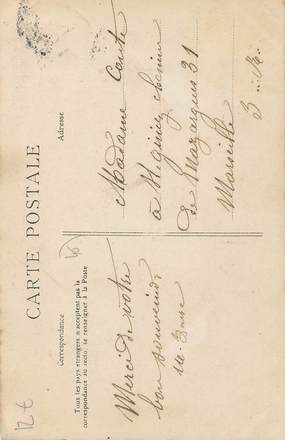 CARTE POSTALE
Correspondance
Tous les pays étrangers n'acceptent pas la
correspondance au recto, se renseigner à la Poste
Adresse
Merci de votre
bon souvenir
Madame Conte
à St Giniez chemin
de Mazargues 31
Marseille
12 €